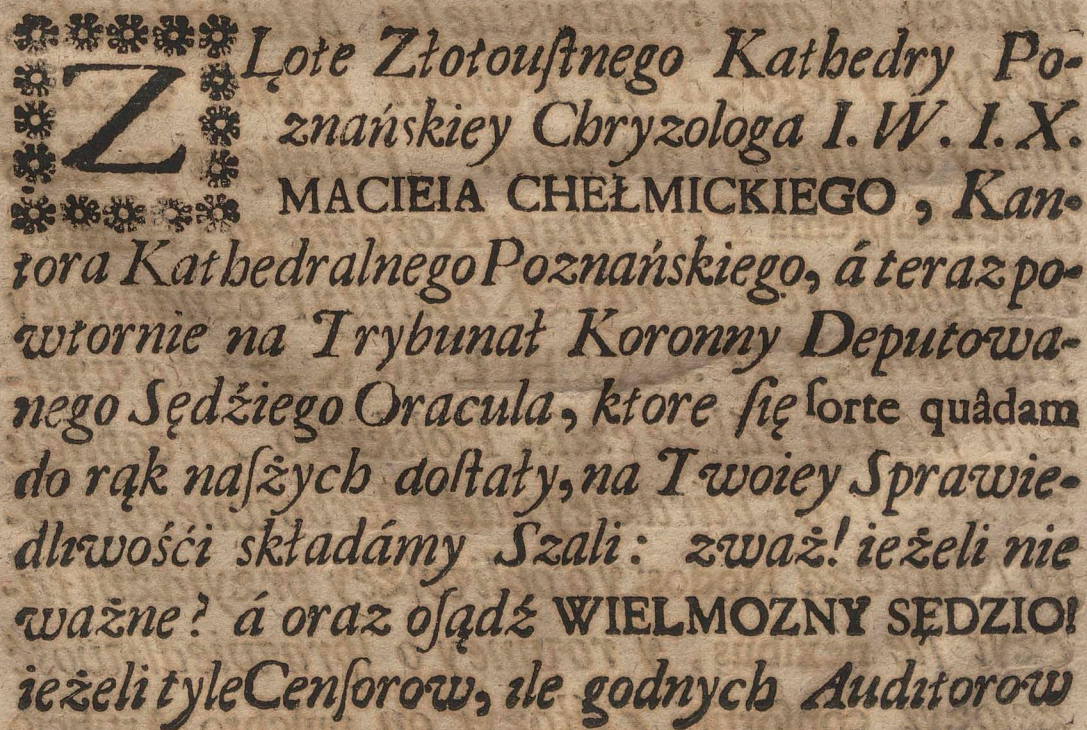 ZLote Złotouſtnego Kathedry Po-
znańskiey Chryzologa I. W. I. X.
MACIEIA CHEŁMICKIEGO, Kan-
tora Kathedralnego Poznańskiego, á teraz po-
wtornie na Trybunał Koronny Deputowa-
nego Sędźiego Oracula, ktore ſię ſorte quâdam
do rąk naſżych doſtały, na Twoiey Sprawie-
dliwośći składámy Szali: zważ! ieżeli nie
ważne? á oraz oſądź WIELMOZNY SĘDZIO!
ieżeli tyle Cenſorow, ile godnych Auditorow